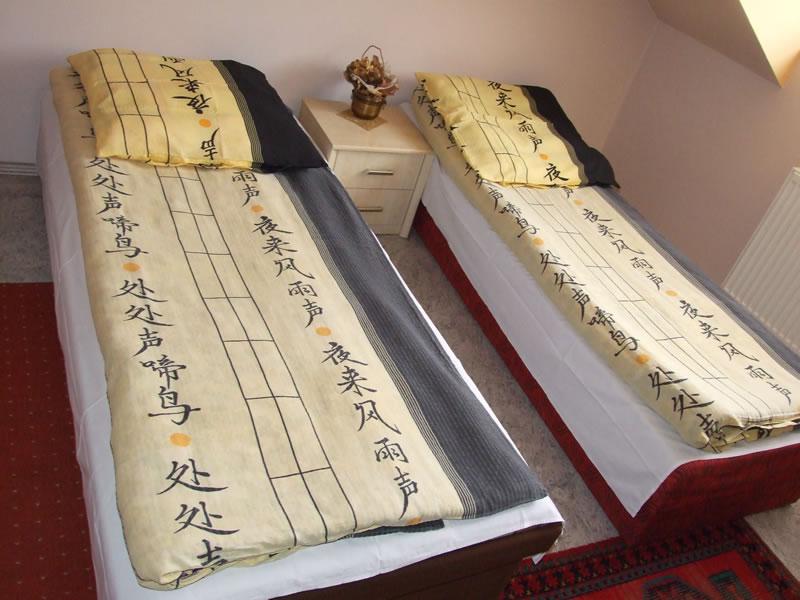 声
夜来风雨
处处声啼鸟
处处声啼鸟
处处声
雨声
夜来风雨声
夜来风雨声
夜来风雨声
夜
声啼鸟
处处声啼鸟
处处声
夜来风雨声
夜来风雨声